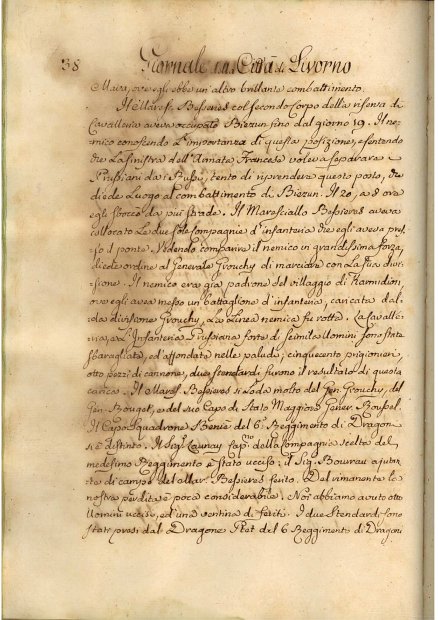 38 Giornale della Città di Livorno
Mava, ove egli ebbe un' altro brillante combattimento.
Il Maresc. Bessieres col secondo Corpo della riserva di
Cavalleria aveva occupato Biezun sino dal giorno 19. Il ne-
mico conoscendo l'importanza di questa posizione, e sentendo
che la sinistra dell'Armata Francese voleva separare i
Prussiani dai Russi, tentò di riprendere questo posto, che
diede luogo al combattimento di Biezun. Il 20, a 8 ore
egli sboccò da più strade. Il Maresciallo Bessieres aveva
collocato le due sole Compagnie d'infanteria che egli aveva pres-
so il ponte. Vedendo comparire il nemico in grandissima forza,
diede ordine al Generale Grouchy di marciare con la sua divi-
sione. Il nemico era già padrone del villaggio di Karmidion,
ove egli avea messo un battaglione d'infanteria, caricata dal-
la divisione Grouchy, la linea nemica fù rotta. La Cavalle-
ria, e l'Infanteria Prussiana forte di seimila Uomini sono state
sbaragliate, ed affondate nelle palude; cinquecento prigionieri,
otto pezzi di cannone, due stendardi furono il resultato di questa
carica. Il Maresc. Bessieres si loda molto del Gen. Grouchy, del
Gen. Rouget, e del suo Capo di Stato Maggiore Gener. Roussel.
Il Capo Squadrone Renié del 6. Reggimento di Dragon
si è distinto. Il Sig. Launay Cap.no della Compagnia scelta del
medesimo Reggimento è stato ucciso; il Sig. Bourrau ajutan-
te di campo del Mar. Bessieres ferito. Del rimanente la
nostra perdita è poco considerabile. Noi abbiamo avuto otto
Uomini uccisi, ed una ventina di feriti. I due Stendardi sono
stati presi dal Dragone Plet del 6 Reggimento di Dragoni